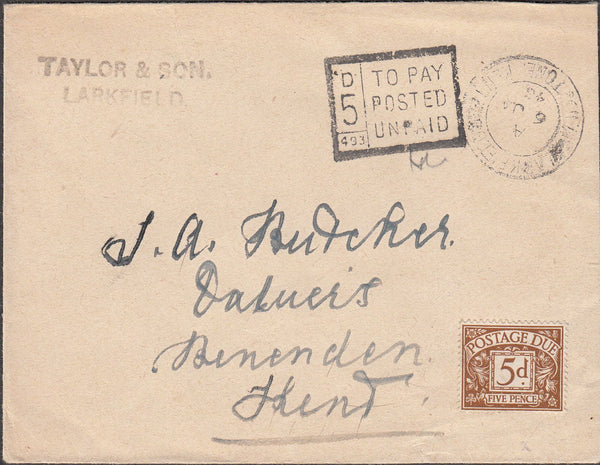 TAYLOR & SON.
LARKFIELD
D
5
493
TO PAY
POSTED
UNPAID
J. A. Butcher.
Benenden
Kent
POSTAGE DUE
5d
FIVE PENCE